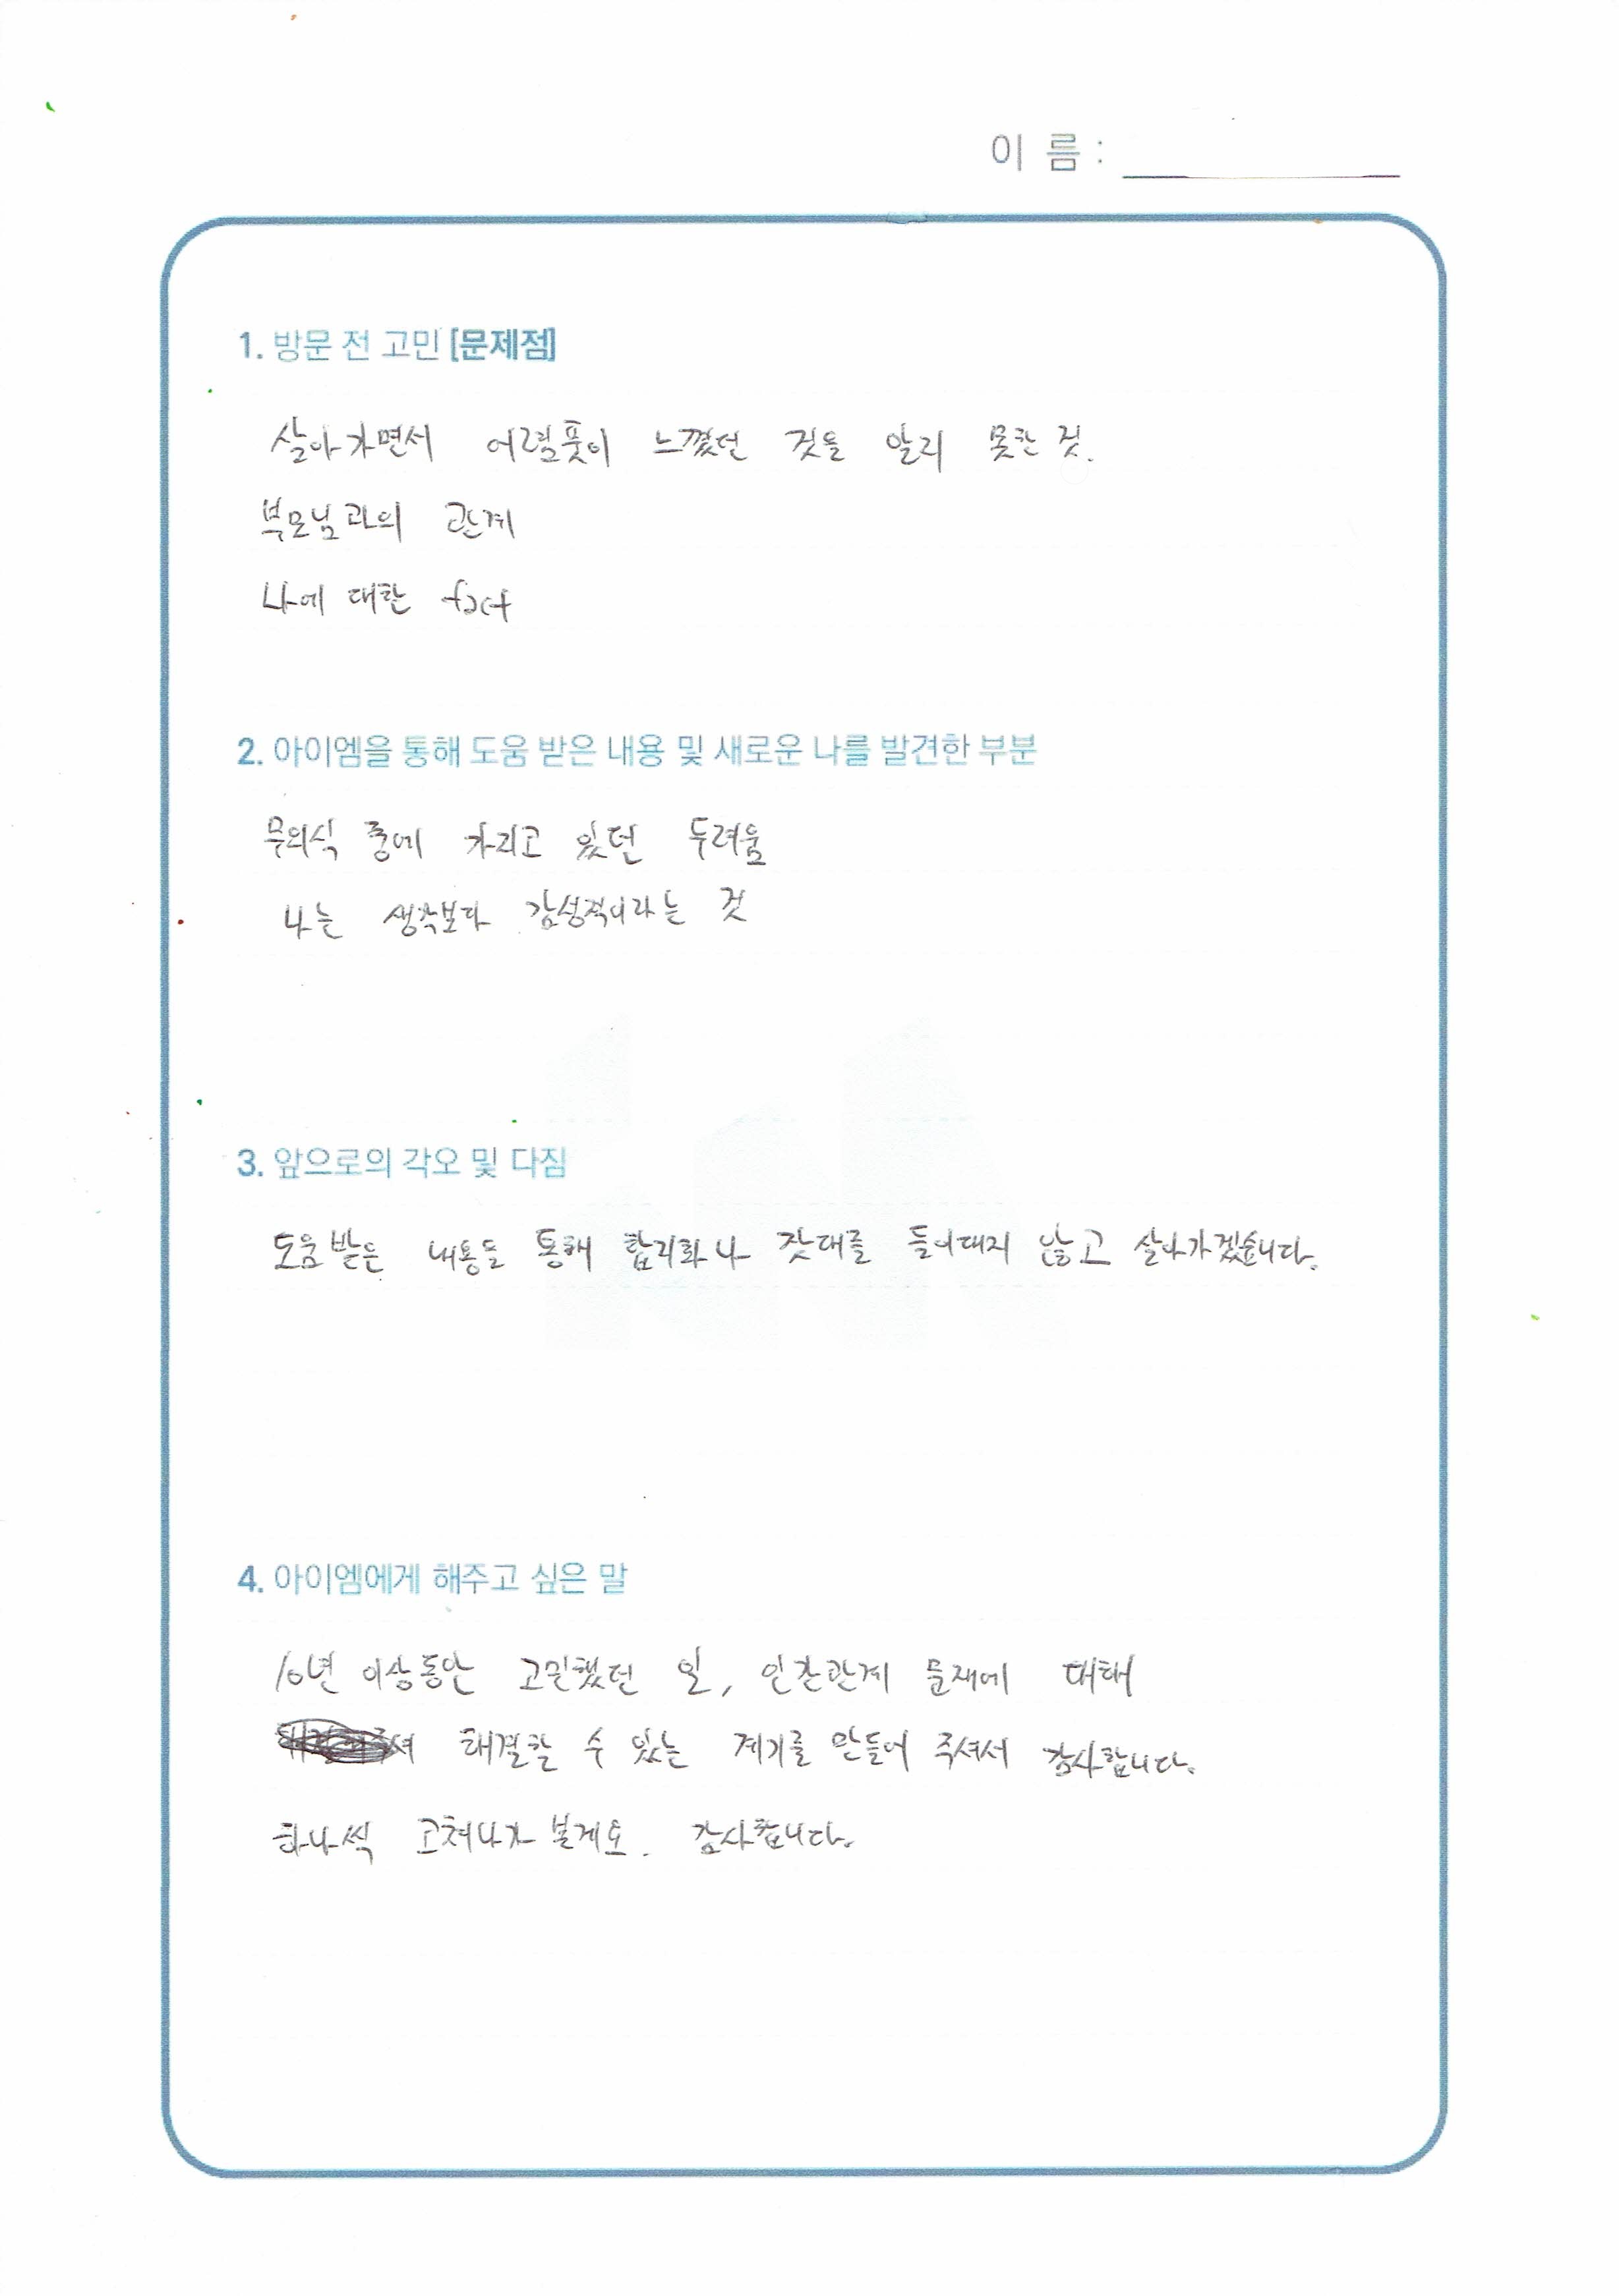 이 름 :
1. 방문 전 고민 [문제점]
살아가면서 어렴풋이 느꼈던 것을 알리 못한 것.
부모님과의 관계
나에 대한 fact
2. 아이엠을 통해 도움 받은 내용 및 새로운 나를 발견한 부분
무의식 중에 가리고 있던 두려움
나는 생각보다 감성적이라는 것
3. 앞으로의 각오 및 다짐
도움받은 내용들 통해 합리화나 잣대를 들이대지 않고 살아가겠습니다.
4. 아이엠에게 해주고 싶은 말
10년 이상동안 고민했던 일, 인간관계 문제에 대해
해결할 수 있는 계기를 만들어 주셔서 감사합니다.
하나씩 고쳐나가 볼게요. 감사합니다.